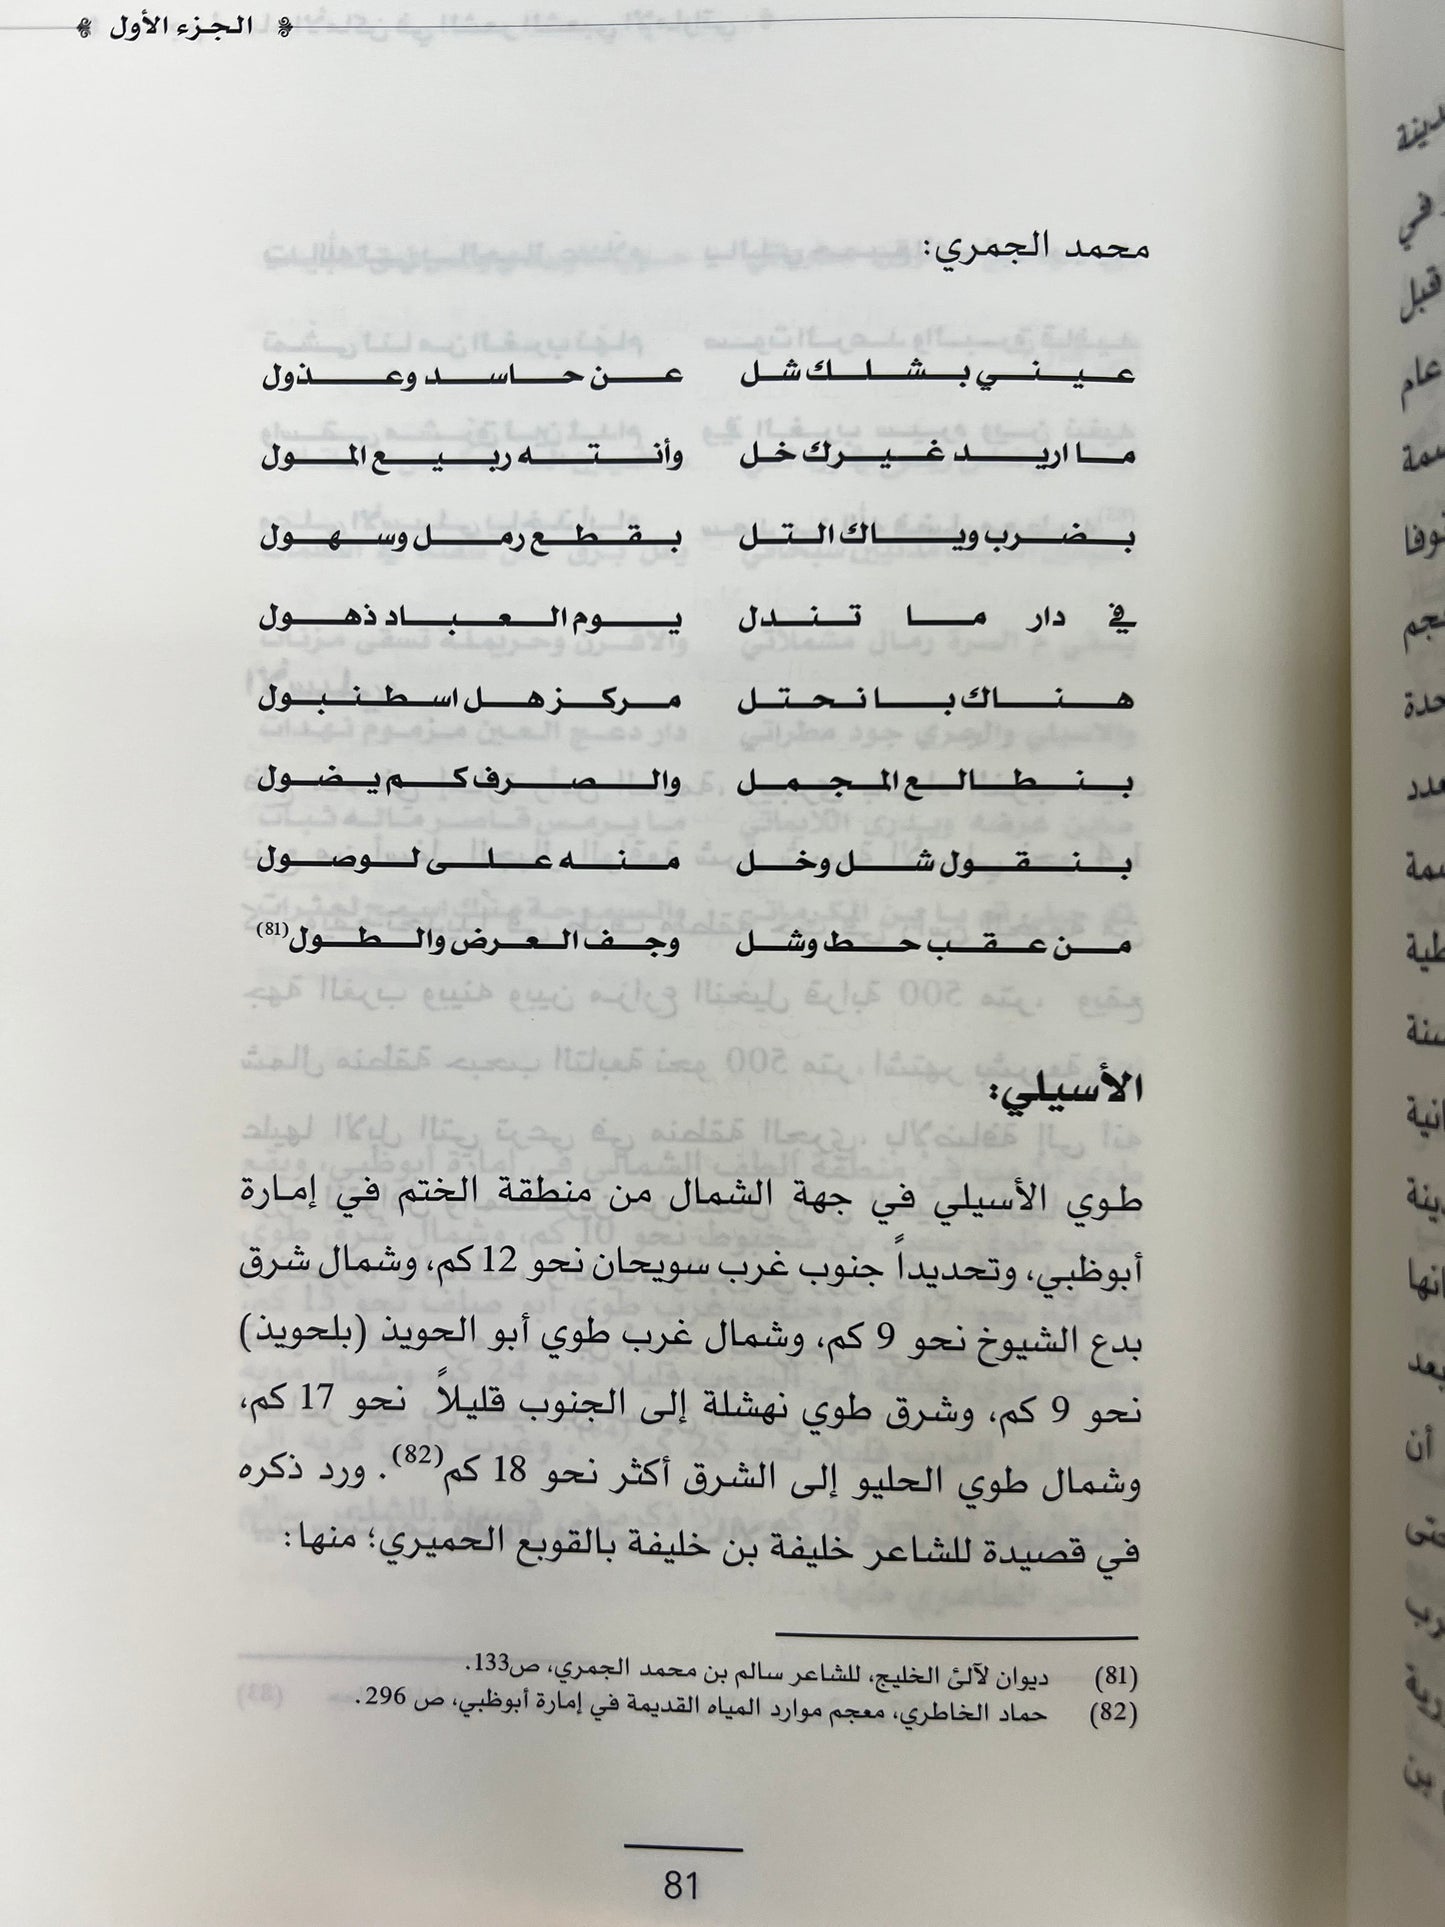 الجزء الأول
محمد الجمري:
عيني بشلك شل عن حاسد وعذول
ما اريد غيرك خل وأنته ربيع المول
بضرب وياك التل بقطع رمل وسهول
في دار ما تندل يوم العباد ذهول
هناك با نحتل مركز هل اسطنبول
بنطالع المجمل والصرف كم يضول
بنقول شل وخل منه على لوصول
من عقب حط وشل وجف العرض والطول(81)
الأسيلي:
طوي الأسيلي في جهة الشمال من منطقة الختم في إمارة
أبوظبي، وتحديداً جنوب غرب سويحان نحو 12 كم، وشمال شرق
بدع الشيوخ نحو 9 كم، وشمال غرب طوي أبو الحويذ (بلحويذ)
نحو 9 كم، وشرق طوي نهشلة إلى الجنوب قليلاً نحو 17 كم،
وشمال طوي الحليو إلى الشرق أكثر نحو 18 كم(82). ورد ذكره
في قصيدة للشاعر خليفة بن خليفة بالقوبع الحميري؛ منها:
(81) ديوان لآلئ الخليج، للشاعر سالم بن محمد الجمري، ص133.
(82) حماد الخاطري، معجم موارد المياه القديمة في إمارة أبوظبي، ص 296.
81